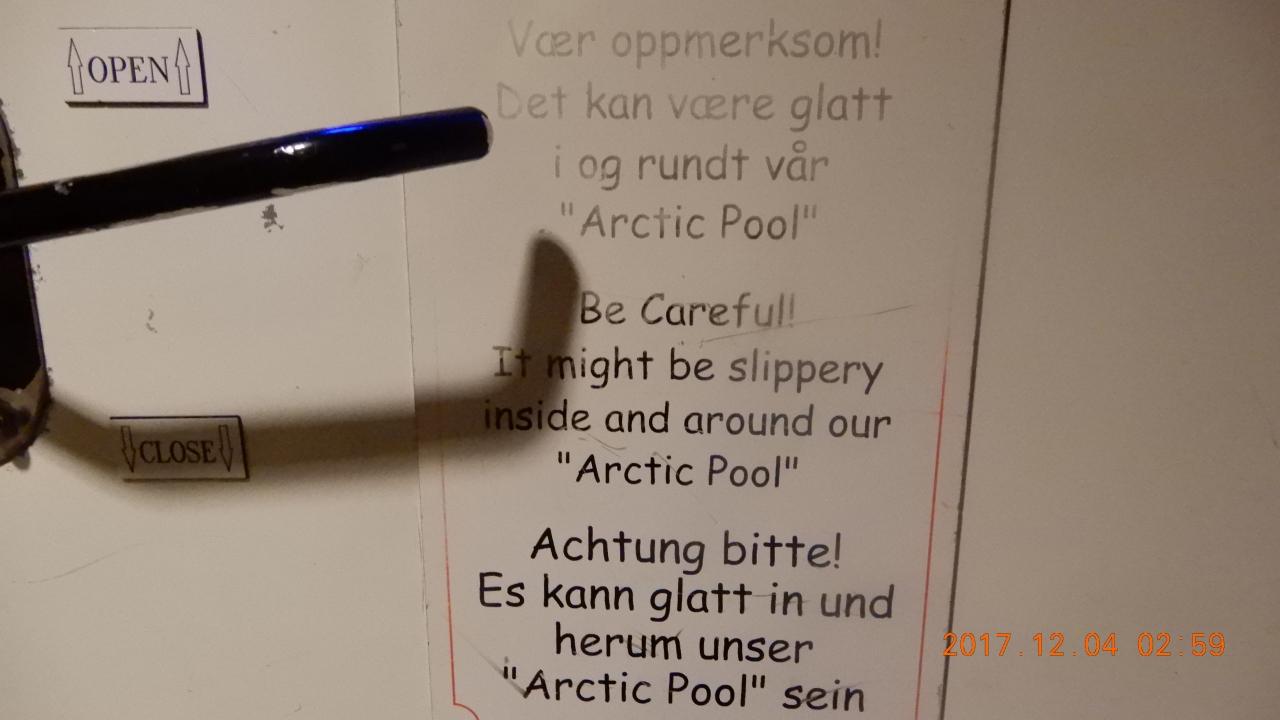 OPEN
CLOSE
Vær oppmerksom!
Det kan være glatt
i og rundt vår
"Arctic Pool"
Be Careful!
It might be slippery
inside and around our
"Arctic Pool"
Achtung bitte!
Es kann glatt in und
herum unser
"Arctic Pool" sein
2017.12.04 02:59